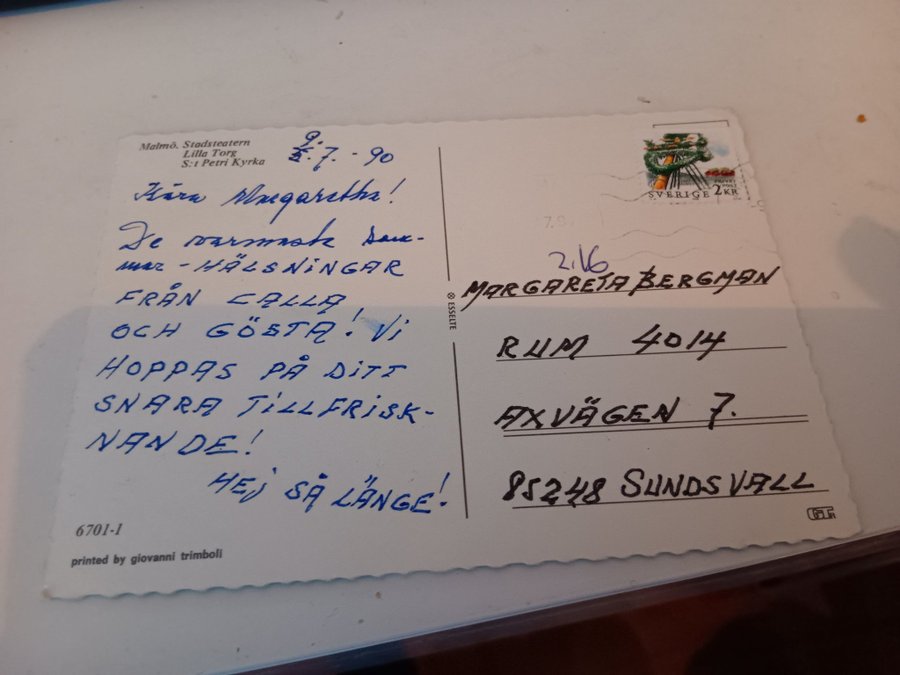 Malmö. Stadsteatern
Lilla Torg
S:t Petri Kyrka
9.
5.7.-90
Kära Margaretha!
De varmaste som-
mar-HÄLSNINGAR
FRÅN CALLA
OCH GÖSTA! Vi
HOPPAS PÅ DITT
SNARA TILLFRISK-
NANDE!
HEJ SÅ LÄNGE!
6701-1
printed by giovanni trimboli
ESSELTE
SVERIGE 2KR
MARGARETA BERGMAN
RUM 4014
AXVÄGEN 7.
85248 SUNDSVALL